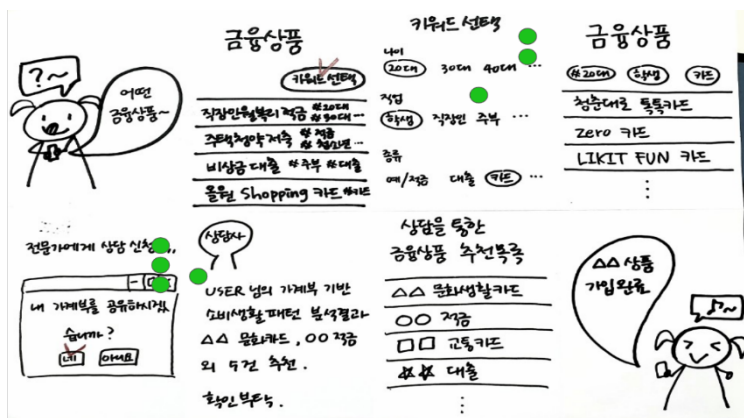 ?~
어떤
금융상품~
금융상품
키워드 선택
직장인월복리 적금 #20대 #30대 ...
주택청약 저축 #적금 #청소년...
비상금 대출 #주부 #대출
올원 Shopping 카드 #카드
키워드 선택
나이
20대 30대 40대 ...
직업
학생 직장인 주부 ...
종류
예/적금 대출 카드 ...
금융상품
#20대 학생 카드
청춘대로 톡톡카드
Zero 카드
LIKIT FUN 카드
⋮
전문가에게 상담 신청
내 가계부를 공유하시겠
습니까?
네 아니요
상담사
USER 님의 가계부 기반
소비생활패턴 분석결과
△△ 문화카드, ○○ 적금
외 5건 추천.
확인부탁.
상담을 통한
금융상품 추천목록
△△ 문화생활카드
○○ 적금
□□ 교통카드
☆☆ 대출
⋮
△△ 상품
가입완료
♪~